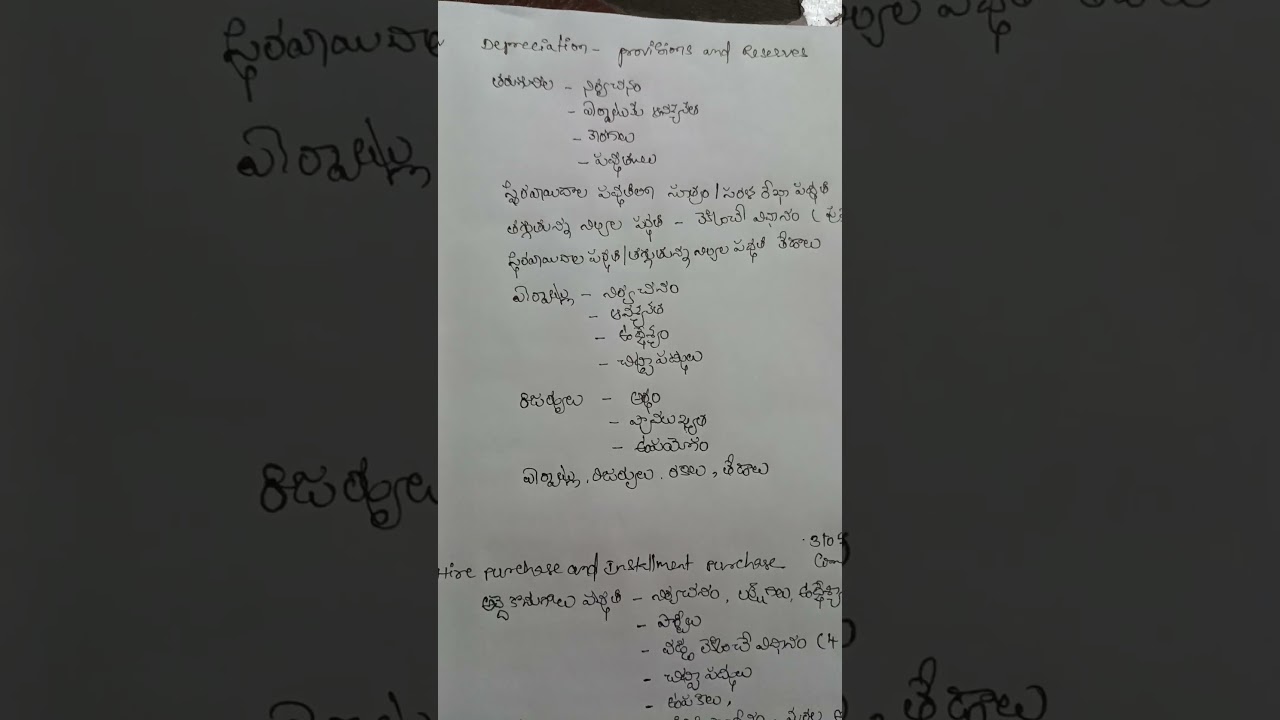 Depreciation - provisions and Reserves
తరుగుదల - నిర్వచనం
- ఏర్పాటుకు ఆవశ్యకత
- కారణాలు
- పద్ధతులు
స్థిరవాయిదాల పద్ధతిలో సూత్రం / సరళ రేఖా పద్ధతి
తగ్గుతున్న నిల్వల పద్ధతి - లెక్కించే విధానం (
స్థిరవాయిదాల పద్ధతి/తగ్గుతున్న నిల్వల పద్ధతి తేడాలు
ఏర్పాట్లు - నిర్వచనం
- ఆవశ్యకత
- ఉద్దేశ్యం
- చిట్టా పద్దులు
రిజర్వులు - అర్థం
- ప్రాముఖ్యత
- ఉపయోగం
ఏర్పాట్లు, రిజర్వులు, రకాలు, తేడాలు
Hire purchase and Installment purchase
అద్దె కొనుగోలు పద్ధతి - నిర్వచనం, లక్షణాలు,
- పార్టీలు
- వడ్డీ లెక్కించే విధానం (4
- చిట్టా పద్దులు